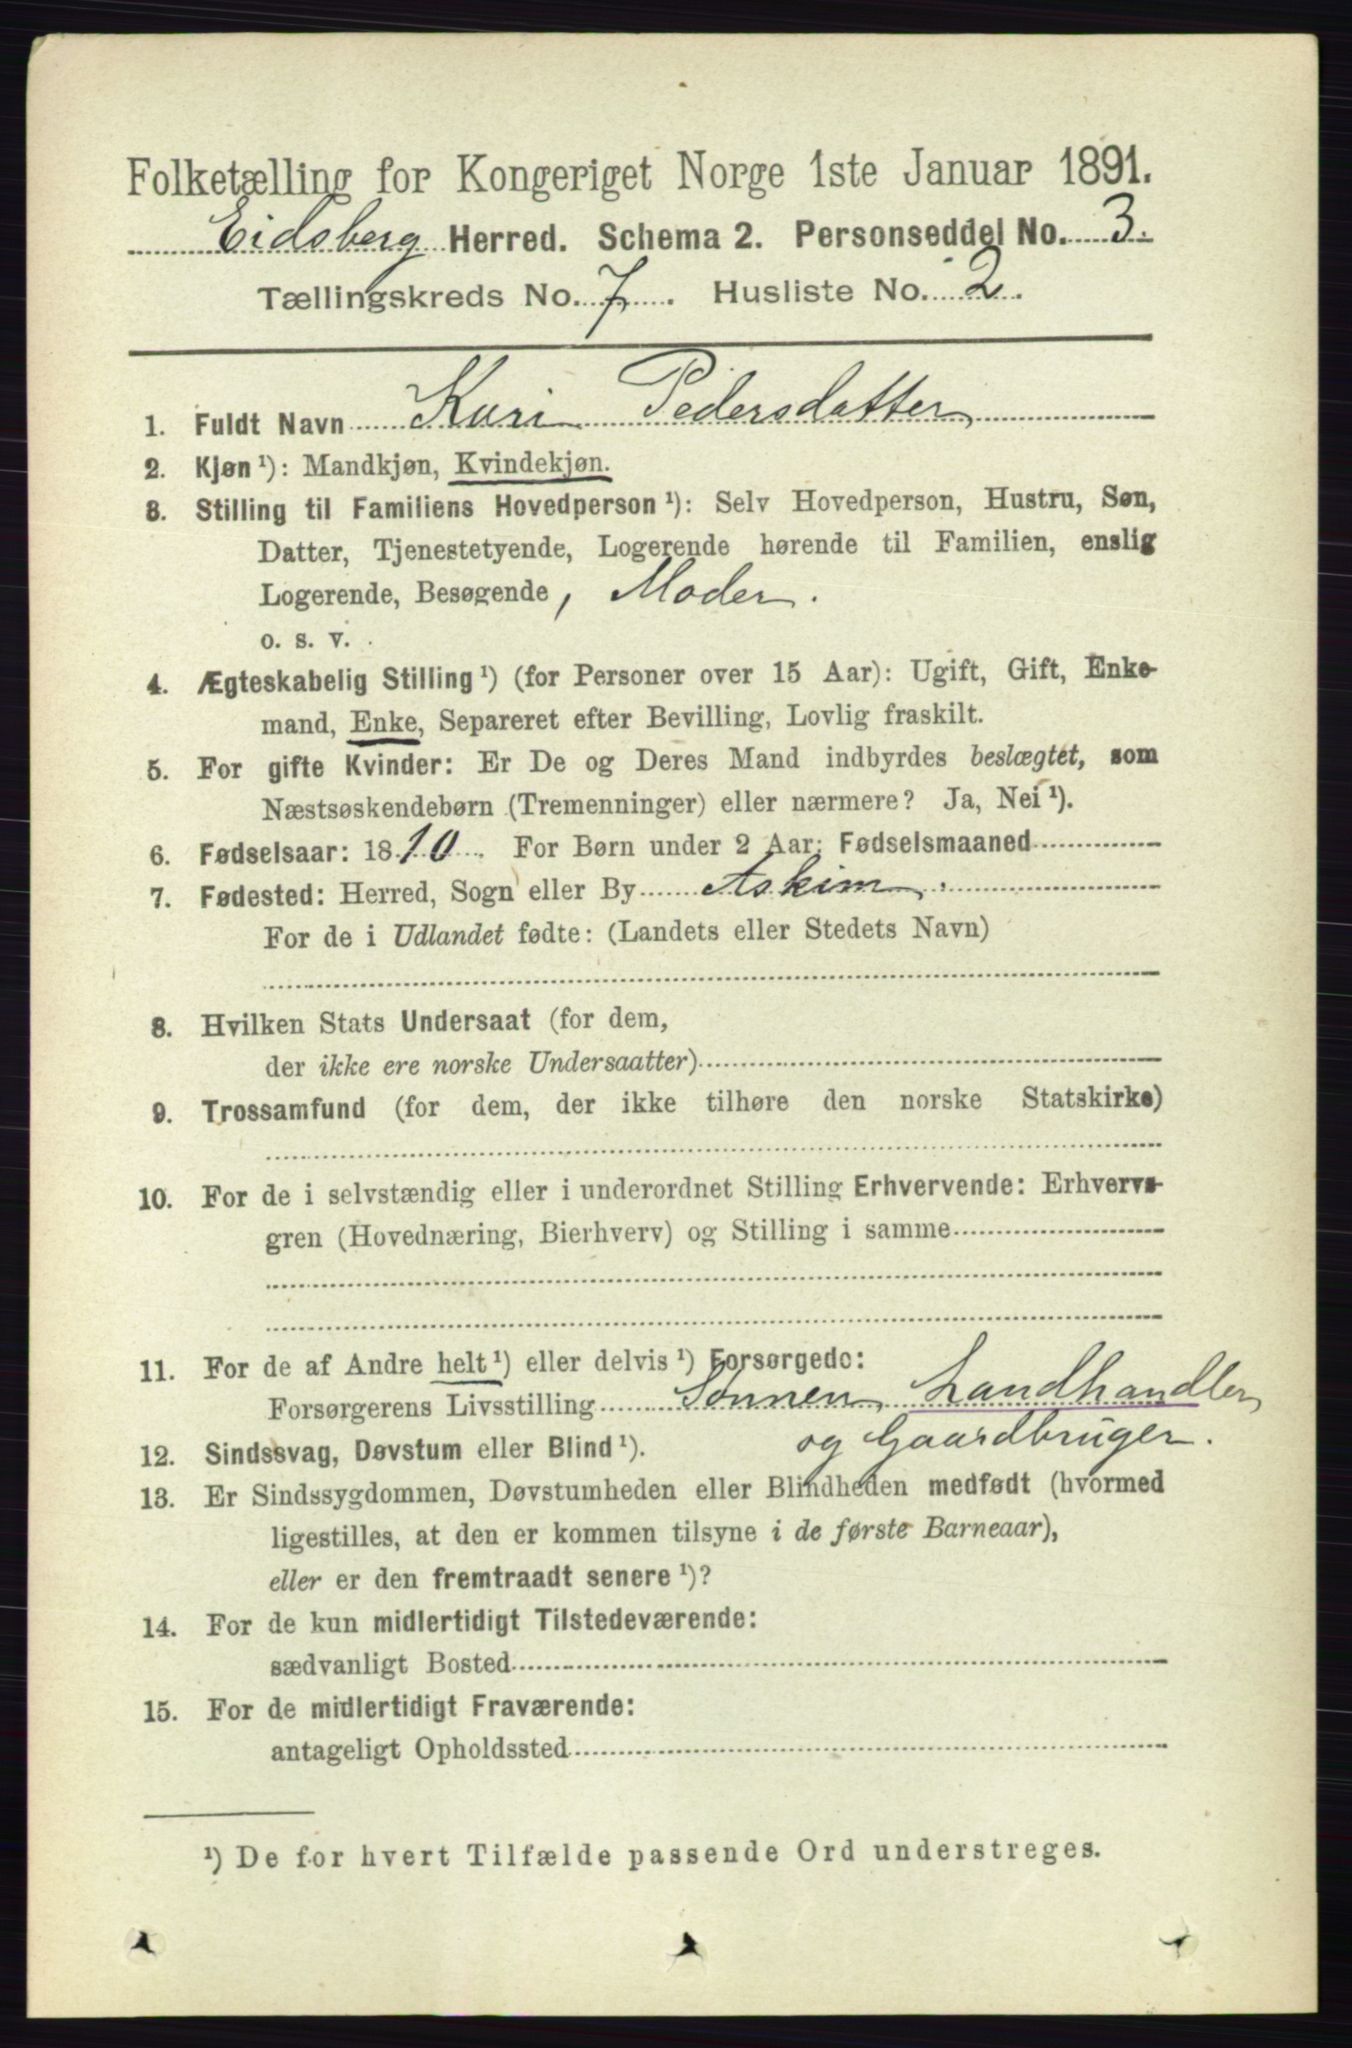 Folketælling for Kongeriget Norge 1ste Januar 1891.
Eidsberg Herred. Schema 2. Personseddel No. 3.
Tællingskreds No. 7. Husliste No. 2.
1. Fuldt Navn Kari Pedersdatter
2. Kjøn ¹): Mandkjøn, Kvindekjøn.
3. Stilling til Familiens Hovedperson ¹): Selv Hovedperson, Hustru, Søn,
Datter, Tjenestetyende, Logerende hørende til Familien, enslig
Logerende, Besøgende, Moder.
o. s. v.
4. Ægteskabelig Stilling ¹) (for Personer over 15 Aar): Ugift, Gift, Enke-
mand, Enke, Separeret efter Bevilling, Lovlig fraskilt.
5. For gifte Kvinder: Er De og Deres Mand indbyrdes beslægtet, som
Næstsøskendebørn (Tremenninger) eller nærmere? Ja, Nei ¹).
6. Fødselsaar: 1810. For Børn under 2 Aar: Fødselsmaaned
7. Fødested: Herred, Sogn eller By Askim.
For de i Udlandet fødte: (Landets eller Stedets Navn)
8. Hvilken Stats Undersaat (for dem,
der ikke ere norske Undersaatter)
9. Trossamfund (for dem, der ikke tilhøre den norske Statskirke)
10. For de i selvstændig eller i underordnet Stilling Erhvervende: Erhvervs-
gren (Hovednæring, Bierhverv) og Stilling i samme
11. For de af Andre helt ¹) eller delvis ¹) Forsørgede:
Forsørgerens Livsstilling Sønnen, Landhandler,
og Gaardbruger.
12. Sindssvag, Døvstum eller Blind ¹).
13. Er Sindssygdommen, Døvstumheden eller Blindheden medfødt (hvormed
ligestilles, at den er kommen tilsyne i de første Barneaar),
eller er den fremtraadt senere ¹)?
14. For de kun midlertidigt Tilstedeværende:
sædvanligt Bosted
15. For de midlertidigt Fraværende:
antageligt Opholdssted
¹) De for hvert Tilfælde passende Ord understreges.